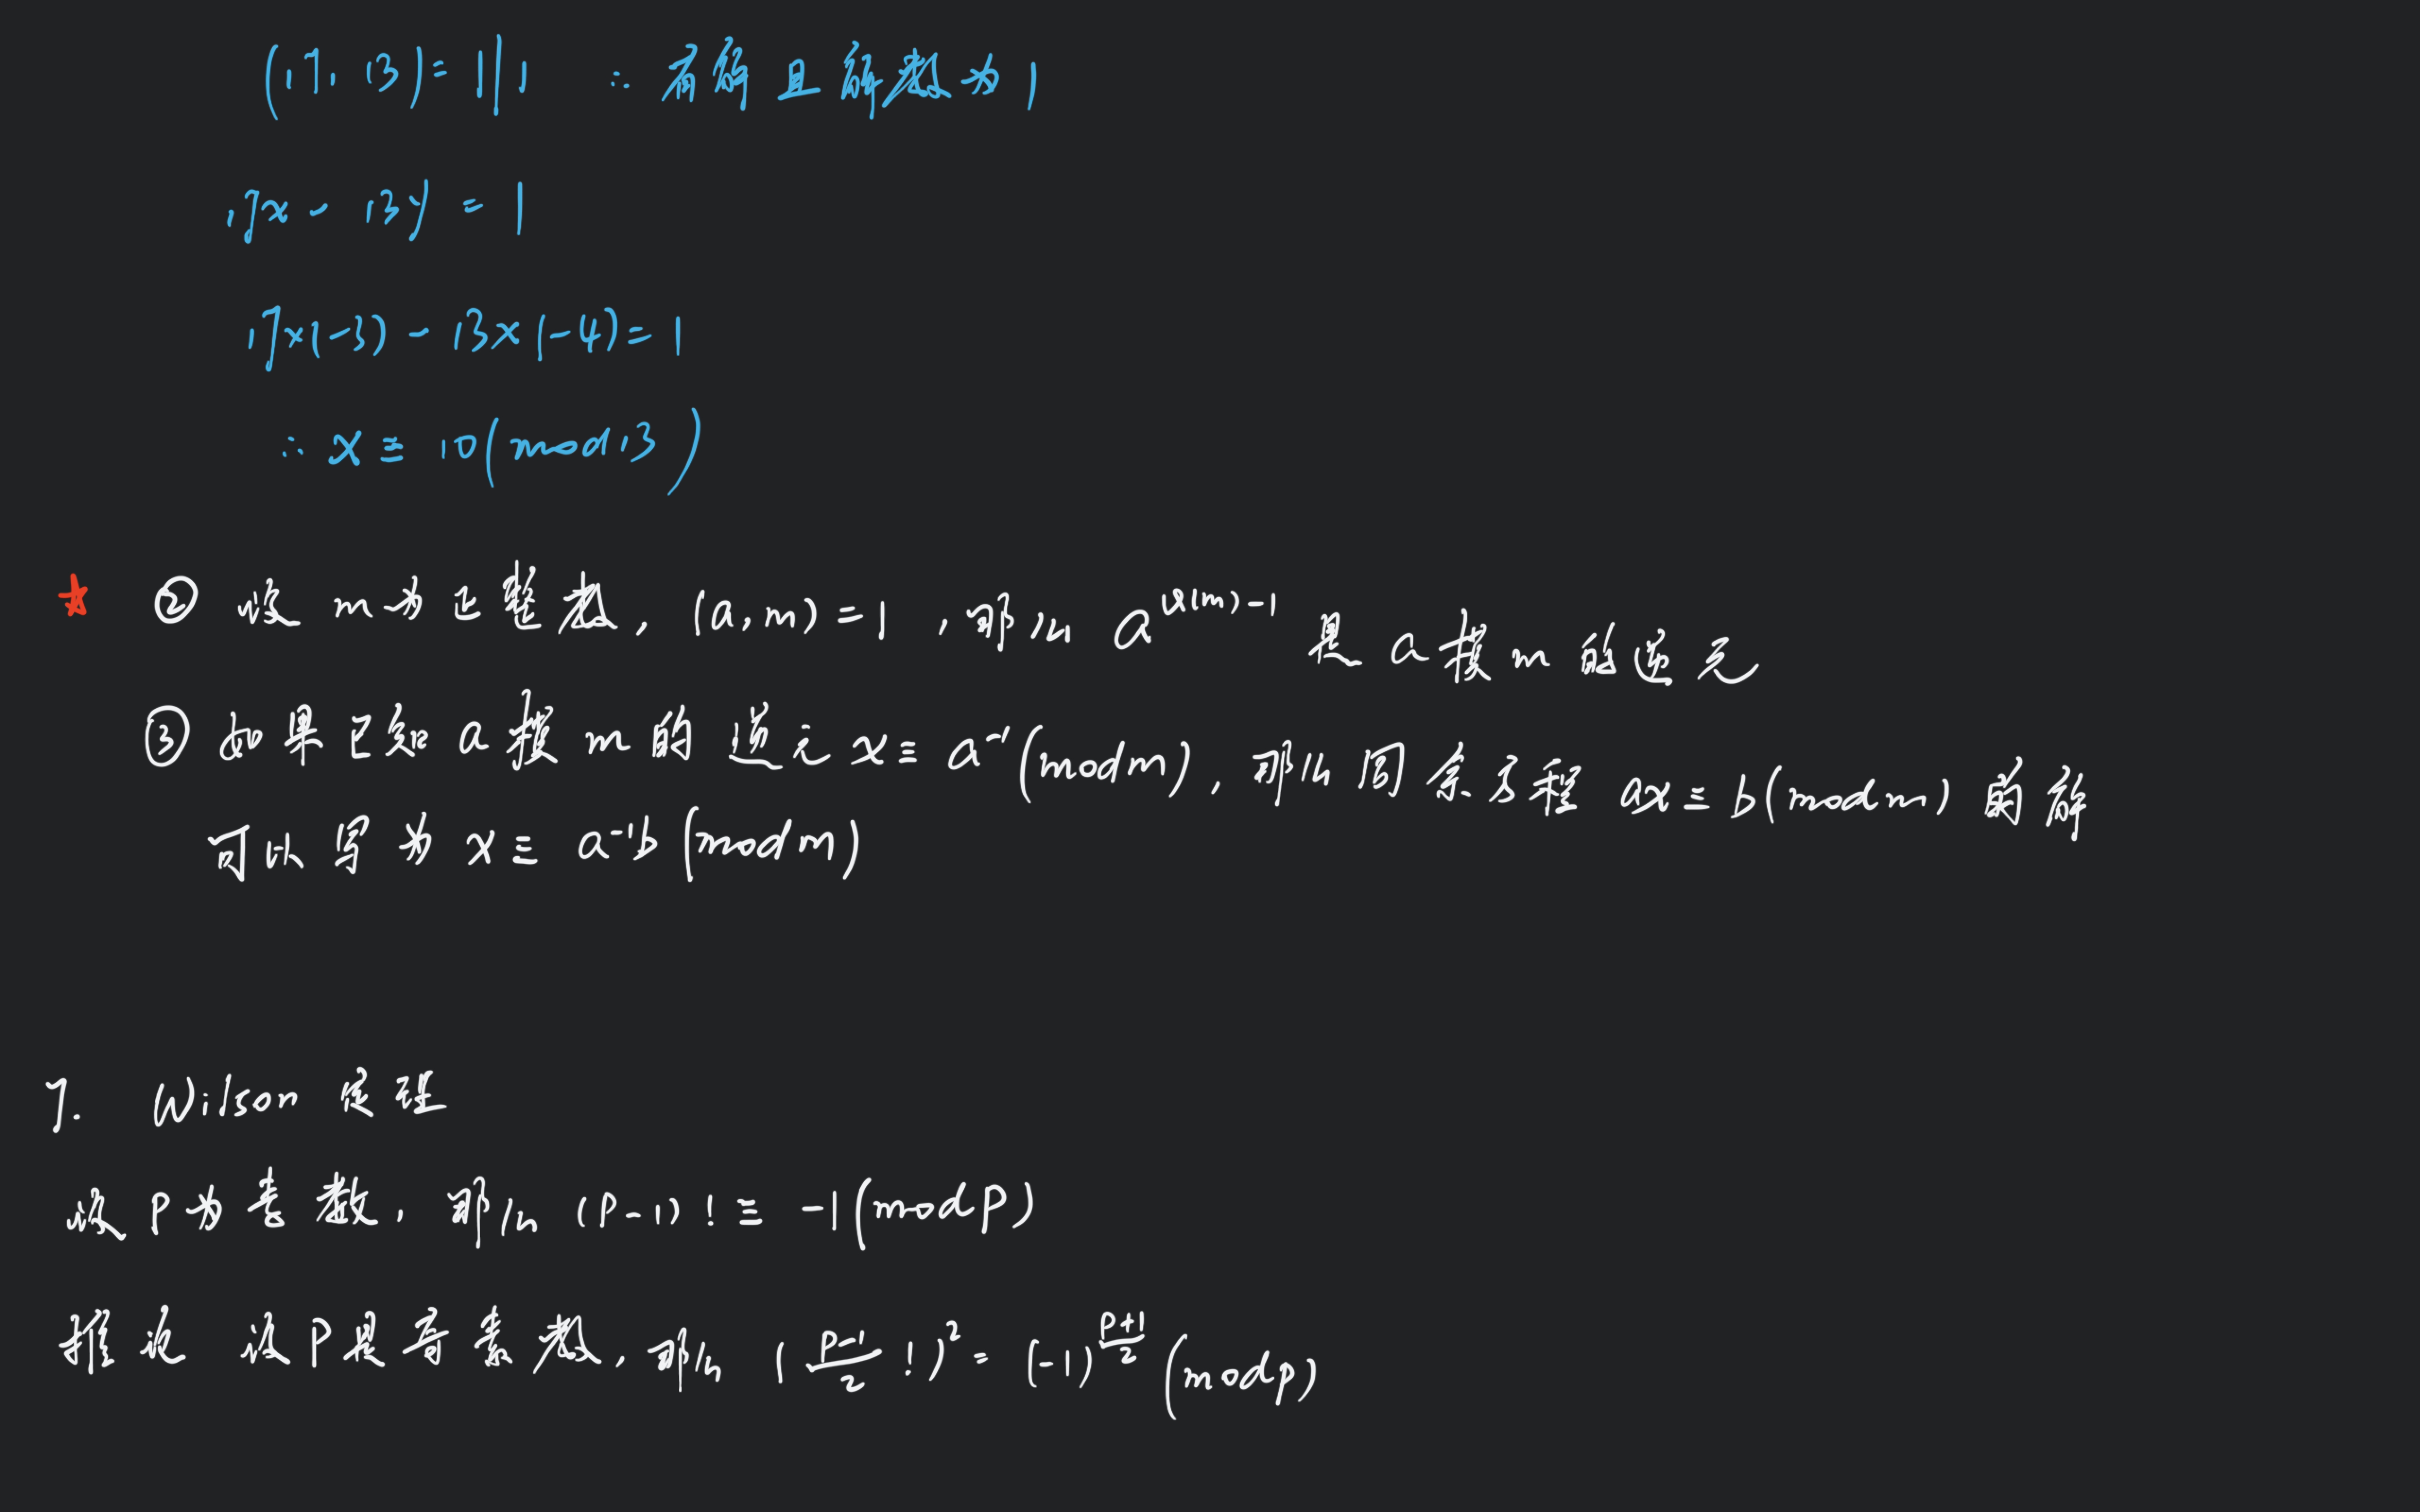 (17, 13)=1|1 ∴有解且解数为1
17x - 13y = 1
17×(-3) - 13×(-4)=1
∴ x ≡ 10(mod13)
★ ② 设 m为正整数, (a,m)=1 ,那么 a^{φ(m)-1} 是 a模m的逆元
③ 如果已知 a模m的逆元 x≡ a⁻¹(modm), 那么同余方程 ax≡b(modm)的解
可以写为 x≡ a⁻¹b (modm)
7. Wilson 定理
设P为素数, 那么 (P-1)!≡ -1(modP)
推论 设P是奇素数, 那么 (\frac{P-1}{2}!)²= (-1)^{\frac{P+1}{2}}(modp)